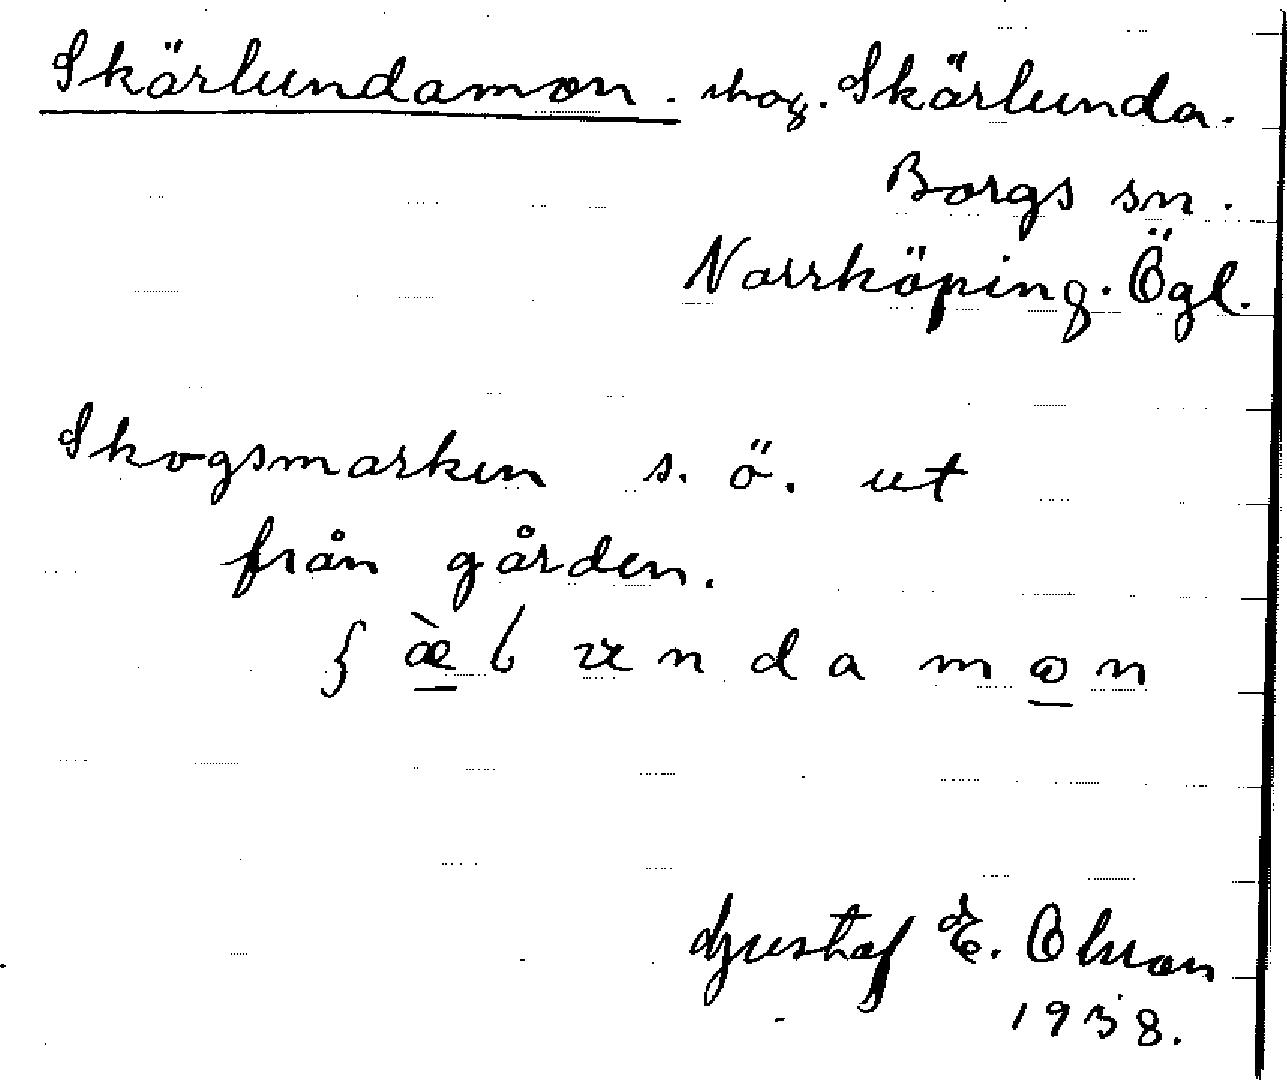 Skärlundamon. skog. Skärlunda.
Borgs sn.
Norrköping. Ögl.
Skogsmarken s. ö. ut
från gården.
ʃ æ̀ ɭ u n d a m ɷ n
Gustaf E. Olson
1938.